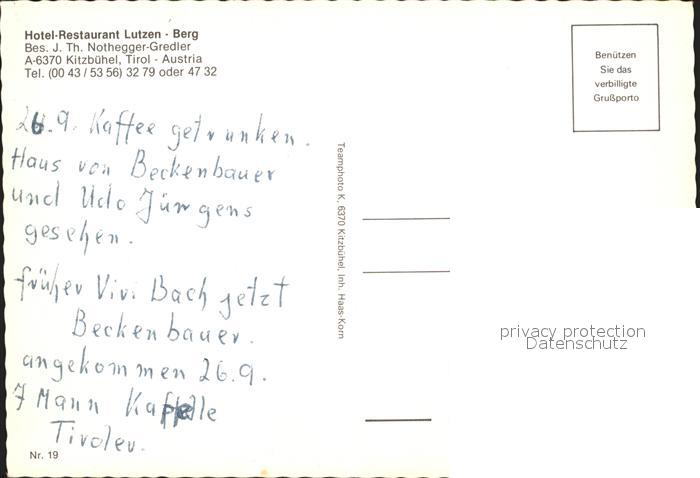 Hotel-Restaurant Lutzen - Berg
Bes. J. Th. Nothegger-Gredler
A-6370 Kitzbühel, Tirol - Austria
Tel. (00 43 / 53 56) 32 79 oder 47 32
Benützen
Sie das
verbilligte
Grußporto
26.9. Kaffee getrunken.
Haus von Beckenbauer
und Udo Jürgens
gesehen.
früher Vivi Bach jetzt
Beckenbauer.
angekommen 26.9.
7 Mann Kapelle
Tiroler.
Nr. 19
Teamphoto K, 6370 Kitzbühel, Inh. Haas-Korn
privacy protection
Datenschutz